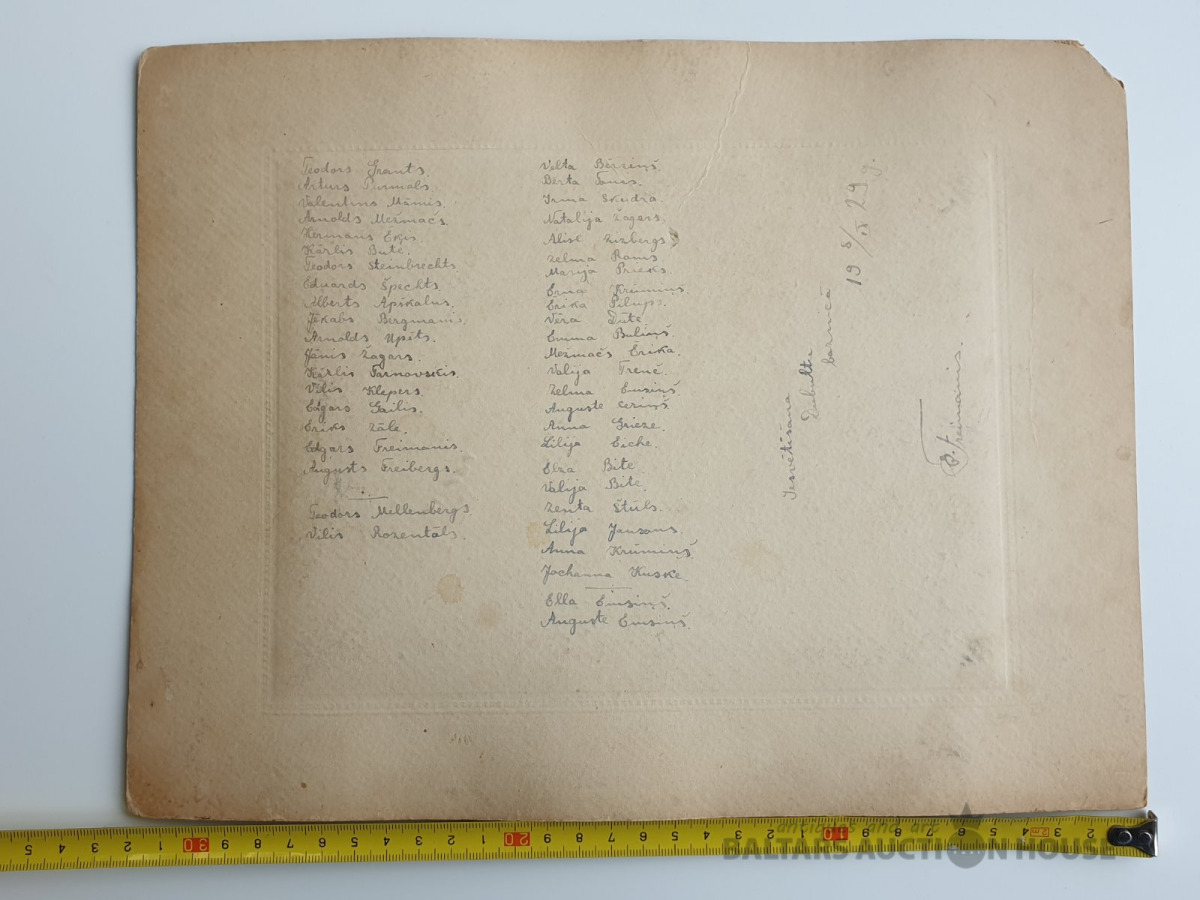 Teodors Grants.
Arturs Purmals.
Valentins Māmis.
Arnolds Mežmačs
Hermans Eķis
Kārlis Bute.
Teodors Steinbrechts
Eduards Špechts
Alberts Apškalns.
Jēkabs Bergmanis.
Arnolds Upīts.
Jānis Žagars.
Kārlis Tarnovskis.
Vilis Klepers.
Edgars Gailis.
Ēriks Zāle.
Edgars Freimanis.
Augusts Freibergs.
Teodors Millenbergs.
Vilis Rozentāls.
Velta Bērziņš.
Berta
Irma Skudra.
Natalija Žagars.
Alise
Zelma
Marija Prieks.
Erna Krūmiņš.
Erika Pilups.
Vēra
Emma Buliņš
Mežmačs Ērika.
Valija
Zelma Emsiņš.
Auguste Ceriņš.
Anna Grieze.
Lilija Eiche.
Elza Bite.
Valija Bite.
Zenta Štūls.
Lilija Jansons.
Anna Krūmiņš.
Jochanna Kuske.
Ella Emsiņš.
Auguste Emsiņš.
Iesvētīšana
Dubultu
baznīcā
19 8/IX 29 g.
Freimanis.
5 4 3 2 1 30 9 8 7 6 5 4 3 2 1 20 9 8 7 6 5 4 3 2 1 10 9 8 7 6 5 4 3 2
2m
antiques and art
BALTARS AUCTION HOUSE